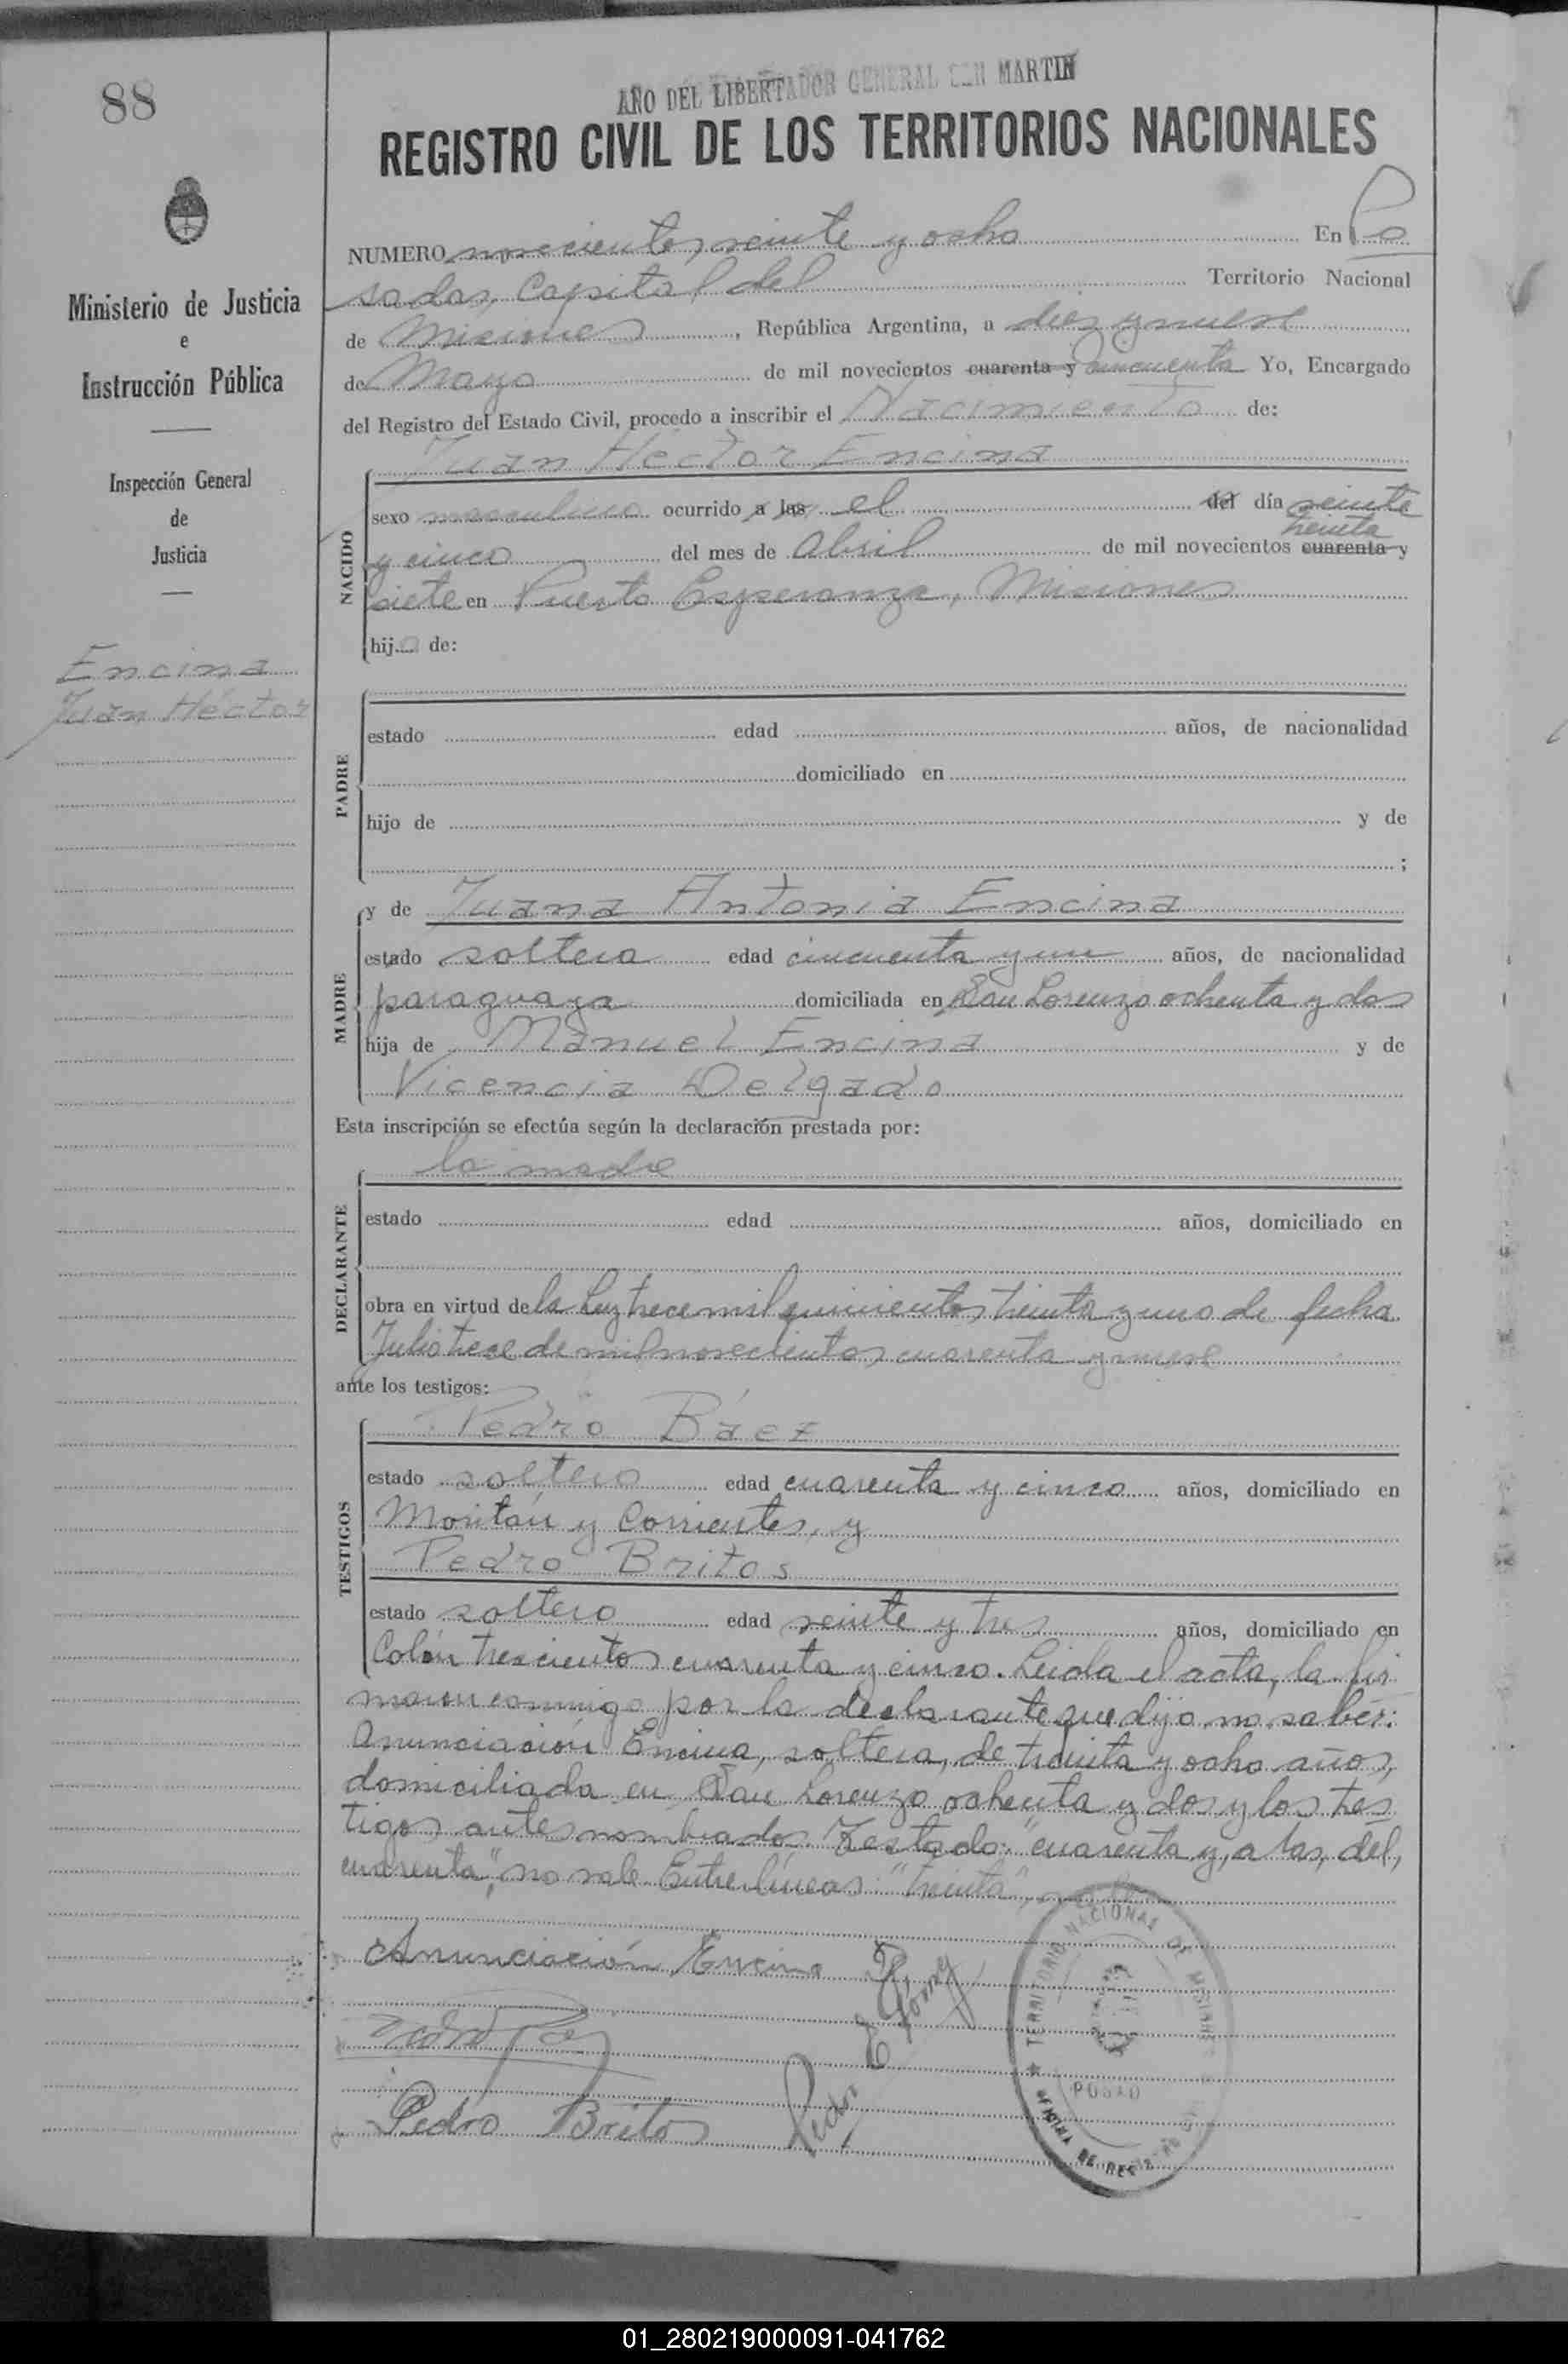 88
AÑO DEL LIBERTADOR GENERAL SAN MARTIN
REGISTRO CIVIL DE LOS TERRITORIOS NACIONALES
Ministerio de Justicia
e
Instrucción Pública
Inspección General
de
Justicia
Encina
Juan Héctor
NUMERO novecientos veinte y ocho En Po
sadas, Capital del Territorio Nacional
de Misiones, República Argentina, a diez y nueve
de Mayo de mil novecientos cuarenta y cincuenta Yo, Encargado
del Registro del Estado Civil, procedo a inscribir el Nacimiento de:
Juan Héctor Encina
NACIDO
sexo masculino ocurrido a las el del día veinte
treinta
y cinco del mes de Abril de mil novecientos cuarenta y
siete en Puerto Esperanza, Misiones
hijo de:
PADRE
estado edad años, de nacionalidad
domiciliado en
hijo de y de
;
MADRE
y de Juana Antonia Encina
estado soltera edad cincuenta y un años, de nacionalidad
paraguaya domiciliada en San Lorenzo ochenta y dos
hija de Manuel Encina y de
Vicencia Delgado
Esta inscripción se efectúa según la declaración prestada por:
la madre
DECLARANTE
estado edad años, domiciliado en
obra en virtud de la Ley trece mil quinientos treinta y uno de fecha
Julio trece de mil novecientos cuarenta y nueve
ante los testigos:
TESTIGOS
Pedro Báez
estado soltero edad cuarenta y cinco años, domiciliado en
Moritán y Corrientes, y
Pedro Britos
estado soltero edad veinte y tres años, domiciliado en
Colón trescientos cuarenta y cinco. Leída el acta, la fir
maron conmigo por la declarante que dijo no saber:
Anunciación Encina, soltera, de treinta y ocho años,
domiciliada en San Lorenzo ochenta y dos y los tes
tigos antes nombrados. Testado: "cuarenta y, a las, del,
cuarenta", no vale. Entrelíneas: "treinta", vale
Anunciación Encina
Pedro Britos
TERRITORIO NACIONAL DE MISIONES
POSAD
OFICINA DE REG
01_280219000091-041762